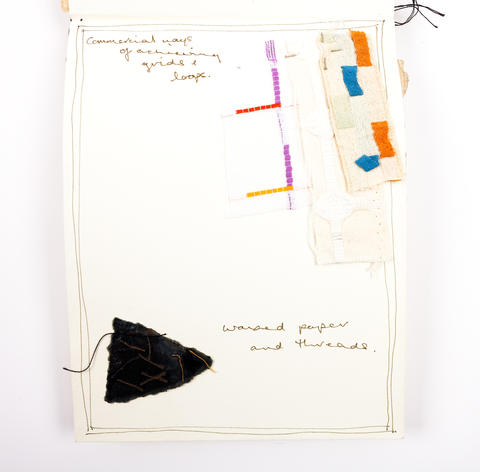 Commercial ways
of achieving
grids &
loops.
waxed paper
and threads.